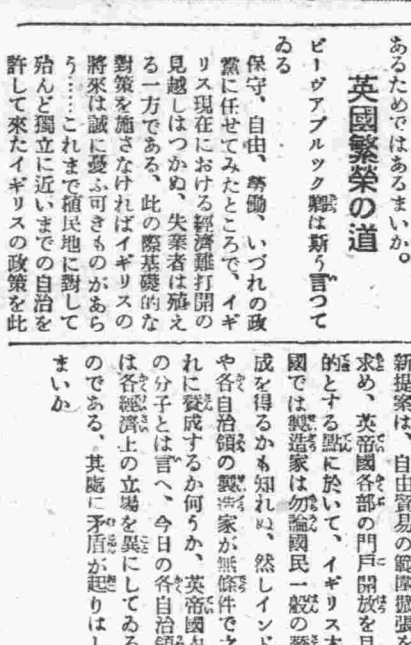 あるためではあるまいか。
英國繁榮の道
ビーヴアブルツク卿は斯う言つて
ゐる
保守、自由、勞働、いづれの政
黨に任せてみたところで、イギ
リス現在における經濟難打開の
見越しはつかぬ、失業者は殖え
る一方である、此の際基礎的な
對策を施さなければイギリスの
將來は誠に憂ふ可きものがあら
う……これまで植民地に對して
殆んど獨立に近いまでの自治を
許して來たイギリスの政策を此
新提案は、自由貿易の範圍擴張を
求め、英帝國各部の門戸開放を目
的とする點に於いて、イギリス本
國では製造家は勿論國民一般の贊
成を得るかも知れぬ、然しインド
や各自治領の製造家が無條件で之
れに贊成するか何うか、英帝國内
の分子とは言へ、今日の各自治領
は各經濟上の立場を異にしてゐる
のである、其處に矛盾が起りはし
まいか